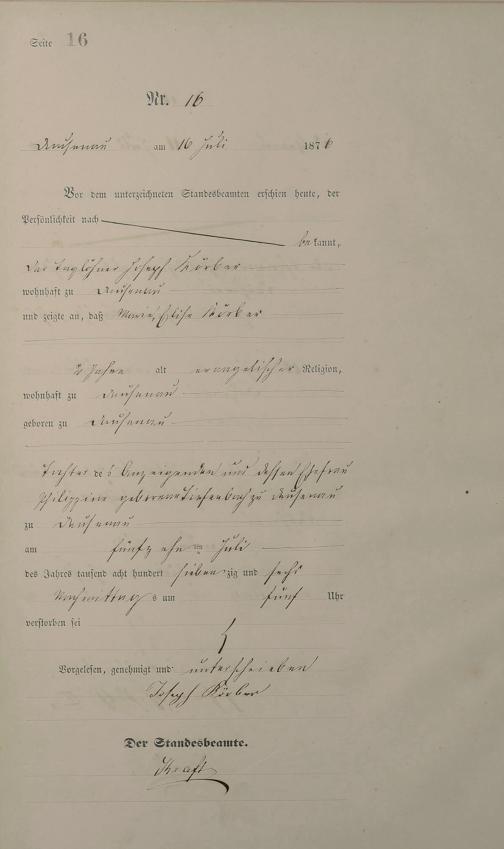 Seite 16
Nr. 16
Dausenau am 16 Juli 1876
Vor dem unterzeichneten Standesbeamten erschien heute, der
Persönlichkeit nach
bekannt,
der Taglöhner Joseph Körber
wohnhaft zu Dausenau
und zeigte an, daß Marie Elise Körber
2 Jahre alt evangelischer Religion,
wohnhaft zu Dausenau
geboren zu Dausenau
Tochter des Anzeigenden und dessen Ehefrau
Philippine geborene Tiefenbach zu Dausenau
zu Dausenau
am fünfzehn ten Juli
des Jahres tausend acht hundert siebenzig und sechs
Nachmittags um fünf Uhr
verstorben sei
Vorgelesen, genehmigt und unterschrieben
Joseph Körber
Der Standesbeamte.
Kraft